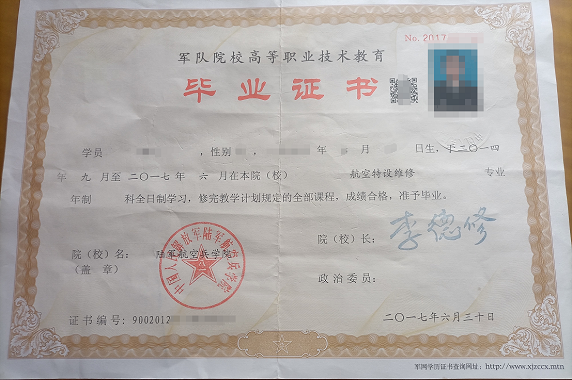 No. 2017
军队院校高等职业技术教育
毕业证书
学员 ，性别 ， 年 月 日生，于二〇一四
年 九 月至 二〇一七年 六 月在本院（校） 航空特设维修 专业
年制 科全日制学习，修完教学计划规定的全部课程，成绩合格，准予毕业。
院（校）名： 陆军航空兵学院
（盖 章）
中国人民解放军陆军航空兵学院
院（校）长： 李德修
政治委员：
证书编号: 9002012
二〇一七年六月三十日
军网学历证书查询网址: http://www.xjzccx.mtn